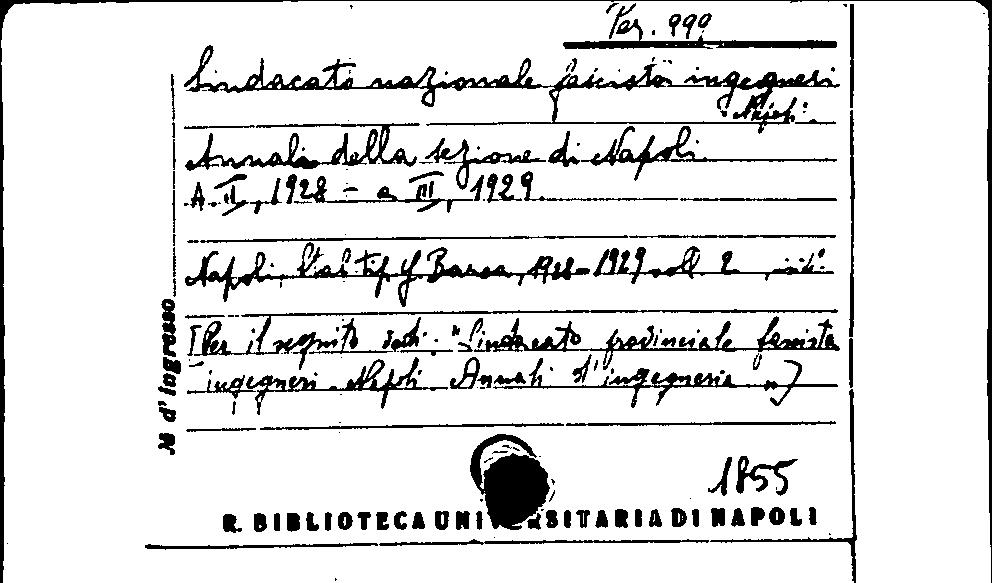 Per. 999
Sindacato nazionale fascista ingegneri
Napoli.
Annali della sezione di Napoli.
A. II, 1928 - a III, 1929.
Napoli, Stab. tip. G. Barca, 1928-1929 voll. 2
[Per il seguito vedi: "Sindacato provinciale fascista
ingegneri. Napoli. Annali d'ingegneria"]
№ d'ingresso
1855
R. BIBLIOTECA UNIVERSITARIA DI NAPOLI